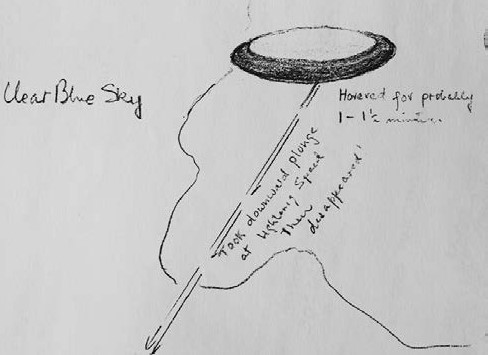 Clear Blue Sky
Hovered for probably
1 - 1½ minutes.
Took downward plunge
at lightning speed
Then
disappeared!